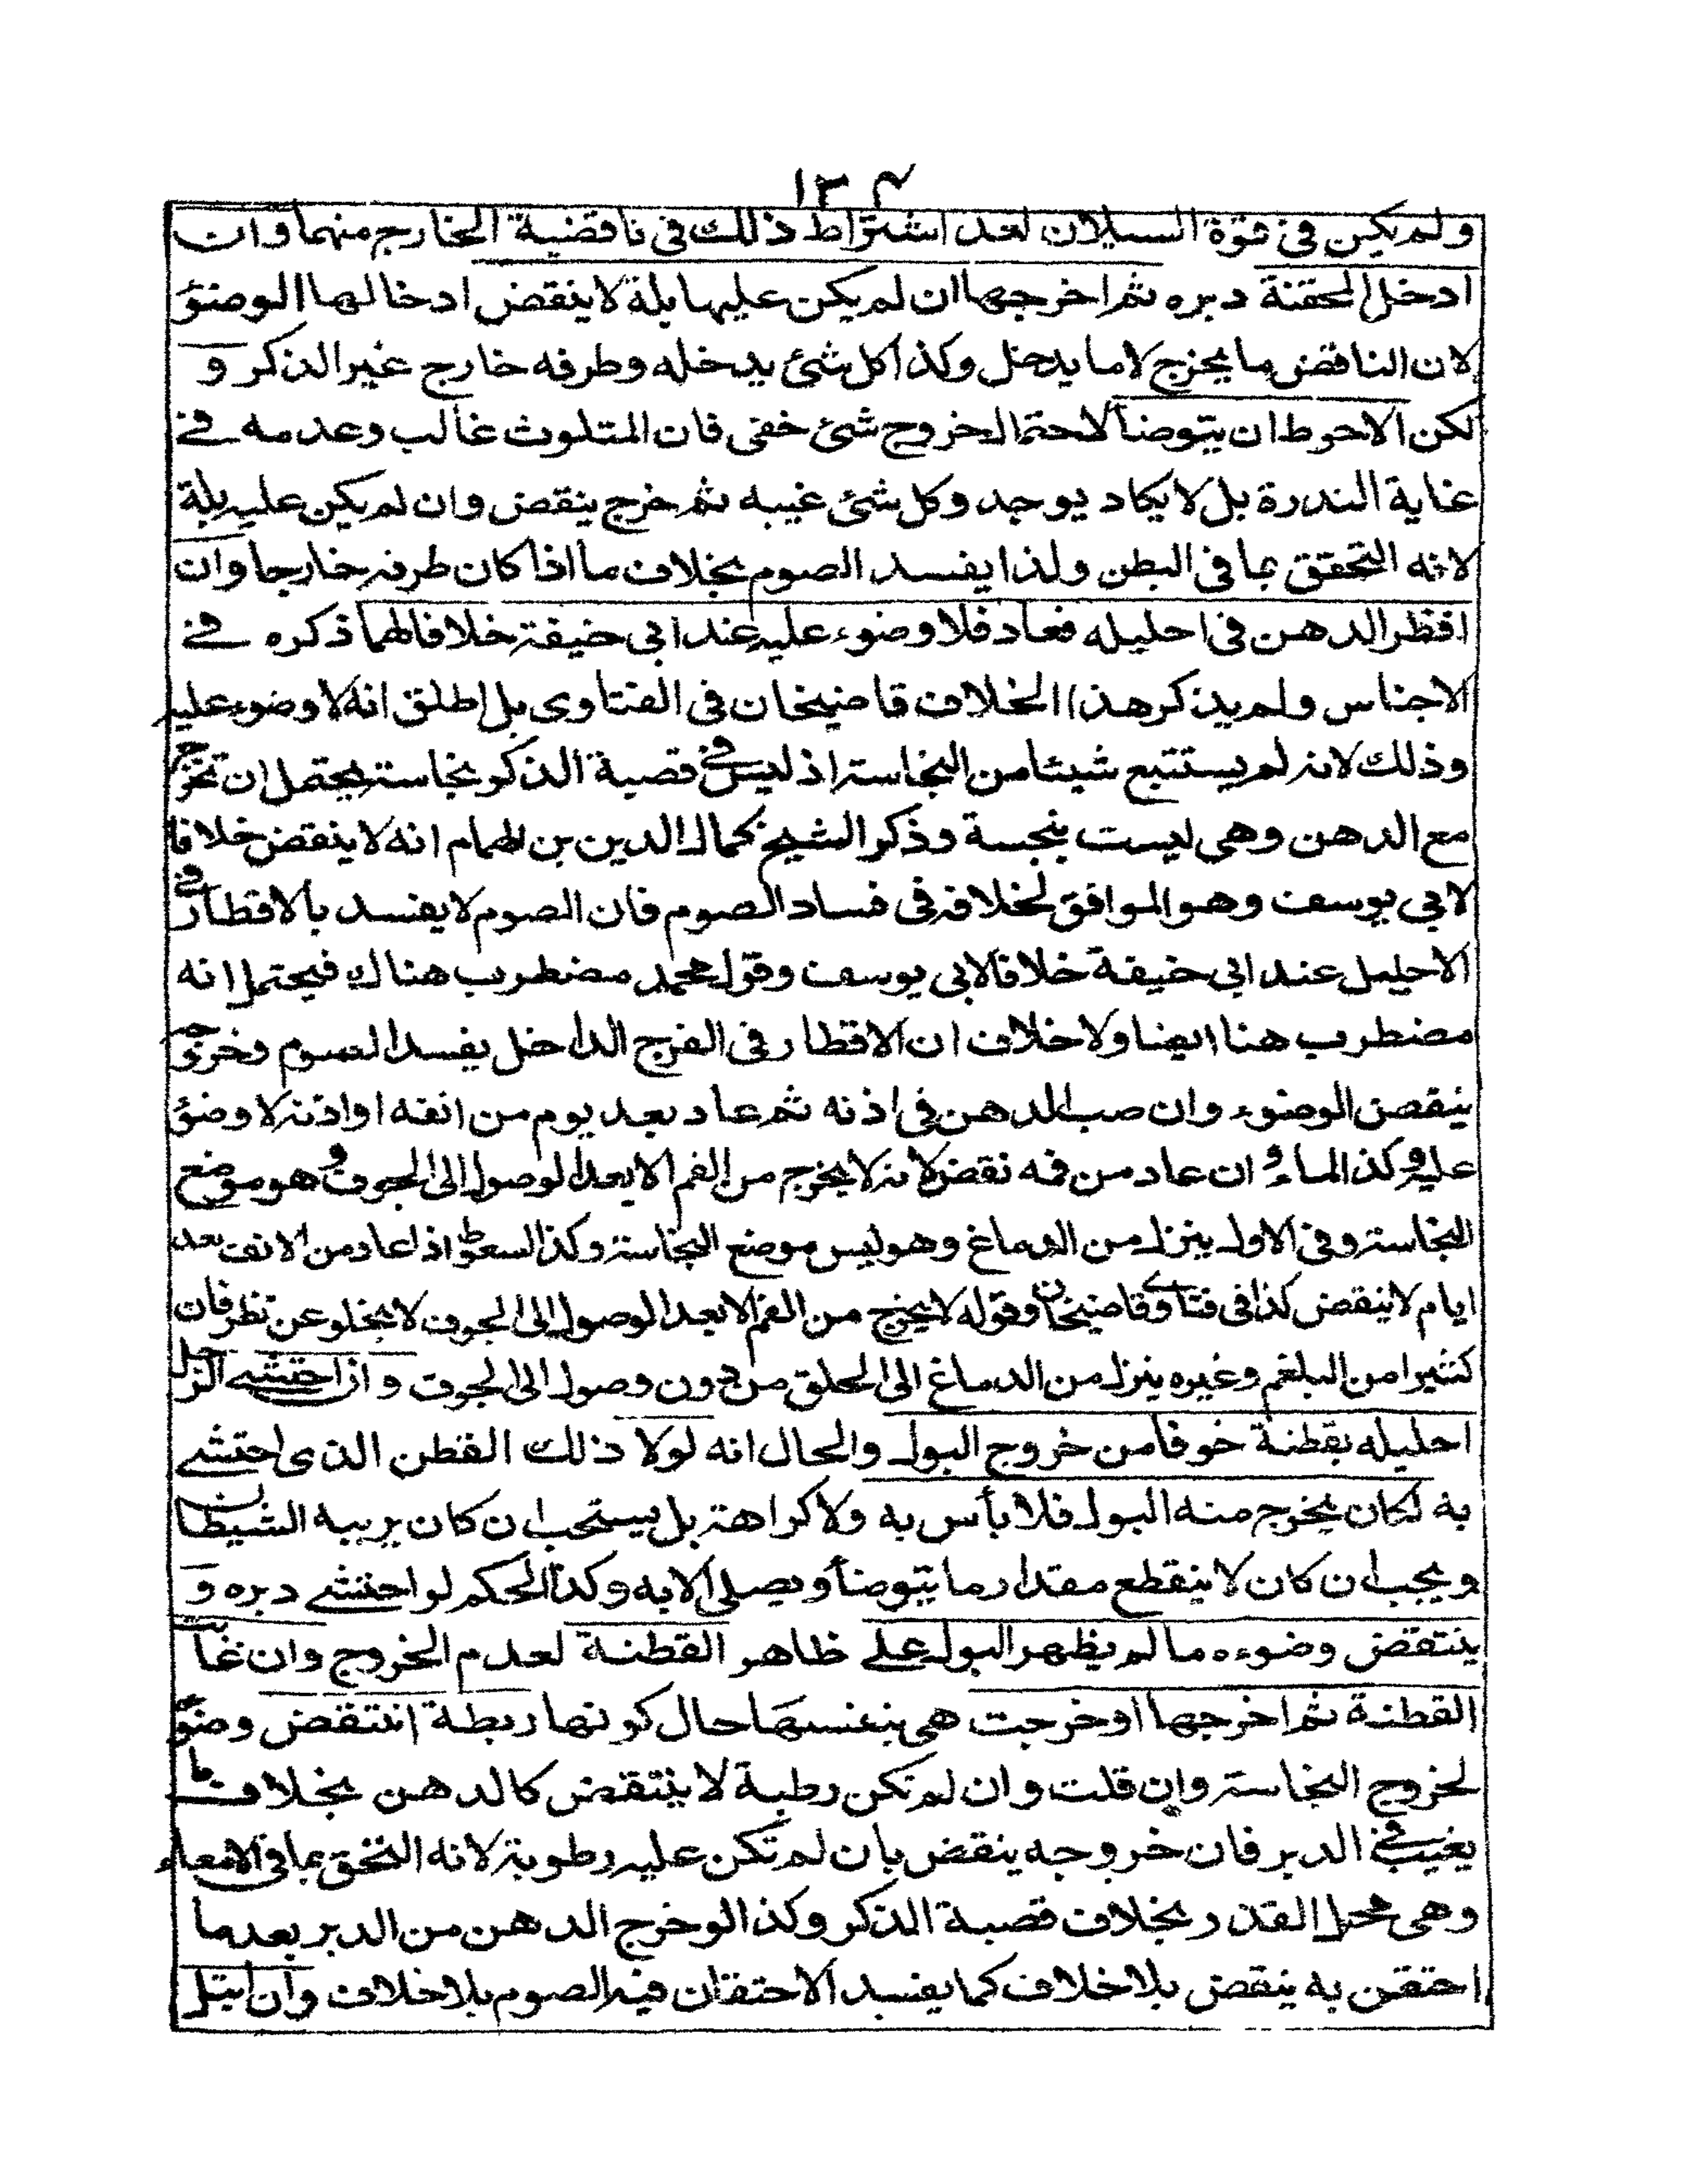 ١٣٤
ولم يكن فى قوة السيلان لعدم اشتراط ذلك فى ناقضية الخارج منهما وان
ادخل المحقنة دبره ثم اخرجها ان لم يكن عليها بلة لا ينقض ادخالها الوضوء
لان الناقض ما يخرج لا ما يدخل وكذا كل شئ يدخله وطرفه خارج غير الذكر و
لكن الاحوط ان يتوضأ لاحتمال خروج شئ خفى فان المتلوث غالب وعدمه فے
غاية الندرة بل لا يكاد يوجد وكل شئ غيبه ثم خرج ينقض وان لم يكن عليه بلة
لانه التحقق بما فى البطن ولذا يفسد الصوم بخلاف ما اذا كان طرفه خارجا وان
اقطر الدهن فى احليله فعاد فلا وضوء عليه عند ابى حنيفة خلافا لهما ذكره فے
الاجناس ولم يذكر هذا الخلاف قاضيخان فى الفتاوى بل اطلق انه لا وضوء عليه
وذلك لانه لم يستتبع شيئا من النجاسة اذ ليس فے قصبة الذكر نجاسة يحتمل ان تخرج
مع الدهن وهى ليست بنجسة وذكر الشيخ كمال الدين بن الهمام انه لا ينقض خلافا
لابى يوسف وهو الموافق لخلافه فى فساد الصوم فان الصوم لا يفسد بالاقطار فے
الاحليل عند ابى حنيفة خلافا لابى يوسف وقول محمد مضطرب هناك فيحتمل انه
مضطرب هنا ايضا ولا خلاف ان الاقطار فى الفرج الداخل يفسد الصوم وخروجه
ينقض الوضوء وان صب الدهن فى اذنه ثم عاد بعد يوم من انفه او اذنه لا وضوء
عليه وكذا الماء و ان عاد من فمه نقض لانه لا يخرج من الفم الا بعد الوصول الى الجوف وهو موضع
النجاسة وفى الاول ينزل من الدماغ وهو ليس موضع النجاسة وكذا السعوط اذا عاد من الانف بعد
ايام لا ينقض كذا فى فتاوے قاضيخان وقوله لا يخرج من الفم الا بعد الوصول الى الجوف لا يخلو عن نظر فان
كثيرا من البلغم وغيره ينزل من الدماغ الى الحلق من دون وصول الى الجوف و ان احتشے الرجل
احليله بقطنة خوفا من خروج البول والحال انه لولا ذلك القطن الذى احتشے
به لكان يخرج منه البول فلا بأس به ولا كراهة بل يستحب ان كان يريبه الشيطان
ويجب ان كان لا ينقطع مقدار ما يتوضأ ويصلى الا به وكذا الحكم لو احتشے دبره و
ينتقض وضوءه ما لم يظهر البول علے ظاهر القطنة لعدم الخروج وان غابت
القطنة ثم اخرجها او خرجت هى بنفسها حال كونها ربطة انتقض وضوؤ
لخروج النجاسة وان قلت وان لم تكن رطبة لا ينتقض كالدهن بخلاف ما
يغيب فے الدبر فان خروجه ينقض بان لم تكن عليه رطوبة لانه التحق بما فى الامعاء
وهى محل القذر بخلاف قصبة الذكر وكذا لو خرج الدهن من الدبر بعد ما
احتقن به ينقض بلا خلاف كما يفسد الاحتقان فيه الصوم بلا خلاف وان ابتل